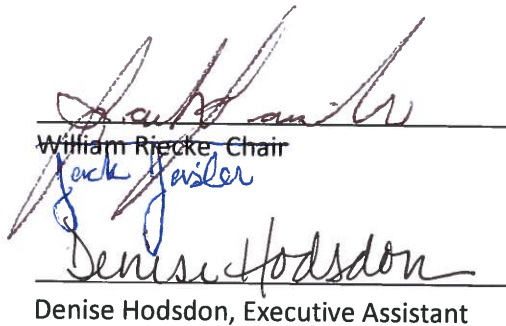 William Riecke, Chair
Jack
Denise Hodsdon
Denise Hodsdon, Executive Assistant